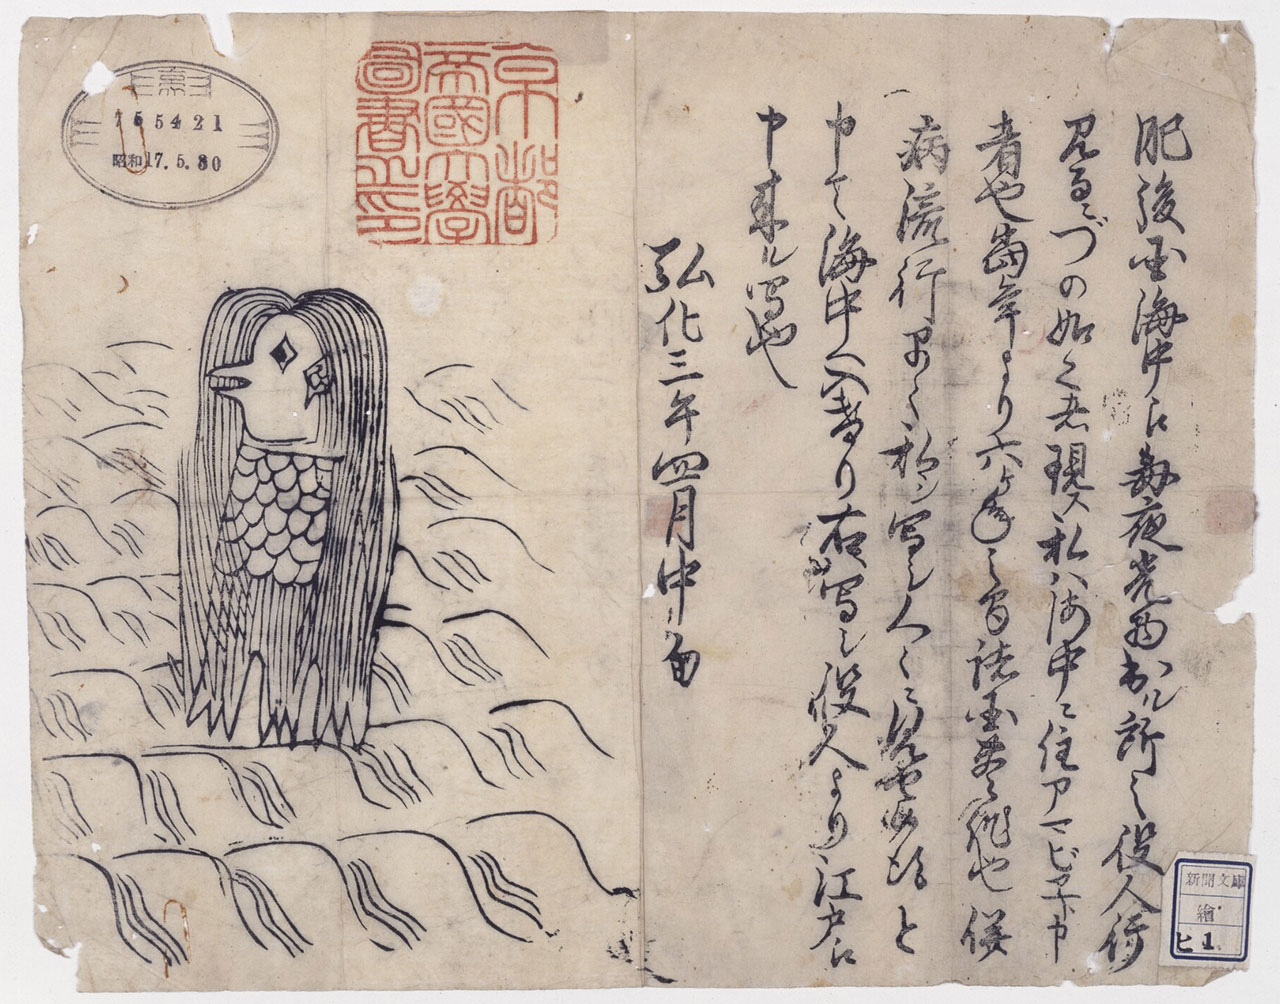 肥後国海中江毎夜光物出ル所之役人行
見るニづの如之者現ス私ハ海中ニ住アマビヱト申
者也當年より六ヶ年之間諸国豊作也併
病流行早々私ヲ写シ人々ニ見せ候得と
申て海中へ入けり右写シ役人より江戸江
申来ル写也
弘化三年四月中旬
京都
帝國大學
圖書之印
155421
昭和17.5.30
新聞文庫
繪
ヒ1